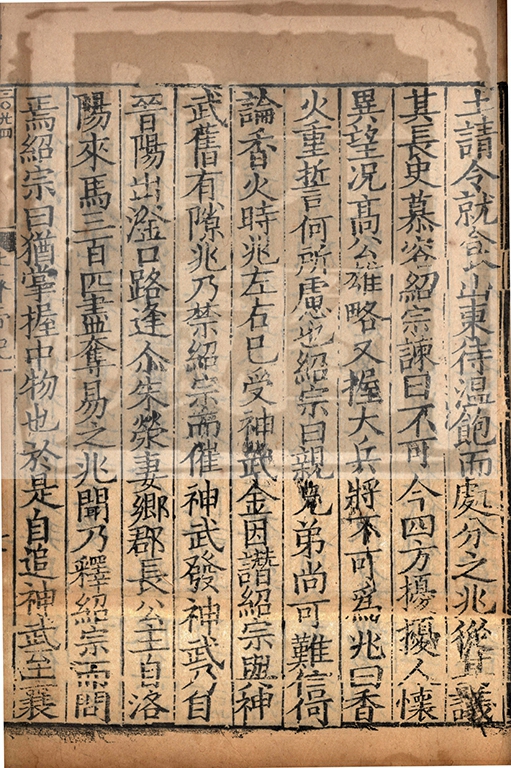 土請令就食山東待温飽而處分之兆從其議
其長史慕容紹宗諫曰不可今四方擾擾人懷
異望况高公雄略又握大兵將不可爲兆曰香
火重誓何所慮也紹宗曰親兄弟尚可難信何
論香火時兆左右已受神武金因譖紹宗與神
武舊有隙兆乃禁紹宗而催神武發神武乃自
晉陽出滏口路逢尒朱榮妻鄉郡長公主自洛
陽來馬三百匹盡奪易之兆聞乃釋紹宗而問
焉紹宗曰猶掌握中物也於是自追神武至襄